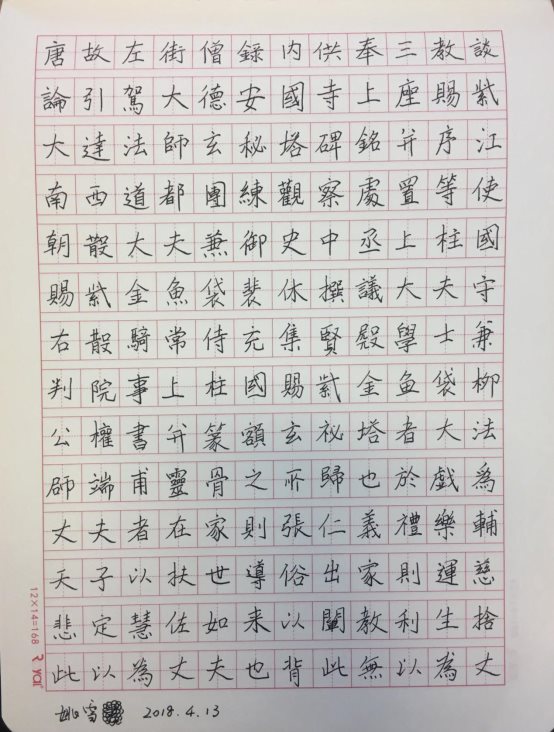 唐故左街僧録内供奉三教談
論引駕大德安國寺上座賜紫
大達法師玄秘塔碑銘并序江
南西道都團練觀察處置等使
朝散大夫兼御史中丞上柱國
賜紫金魚袋裴休撰議大夫守
右散騎常侍充集賢殿學士兼
判院事上柱國賜紫金魚袋柳
公權書并篆額玄祕塔者大法
師端甫靈骨之所歸也於戲為
丈夫者在家則張仁義禮樂輔
天子以扶世導俗出家則運慈
悲定慧佐如来以闡教利生捨
此以為丈夫也背此無以為丈
12×14=168
姚雪 2018.4.13